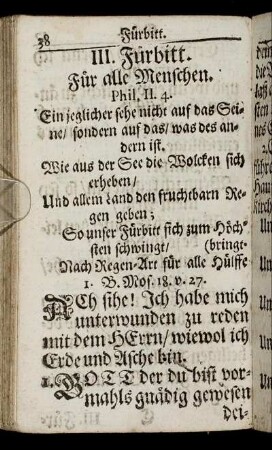 38 Fürbitt.
III. Fürbitt.
Für alle Menschen.
Phil. II. 4.
Ein jeglicher sehe nicht auf das Sei-
ne/ sondern auf das/ was des an-
dern ist.
Wie aus der See die Wolcken sich
erheben/
Und allem Land den fruchtbarn Re-
gen geben;
So unser Fürbitt sich zum Höch-
sten schwingt/ (bringt.
Nach Regen-Art für alle Hülffe
1. B. Mos. 18. v. 27.
ACh sihe! Ich habe mich
unterwunden zu reden
mit dem HErrn/ wiewol ich
Erde und Asche bin.
1. GOTT der du bist vor-
mahls gnädig gewesen
dei-